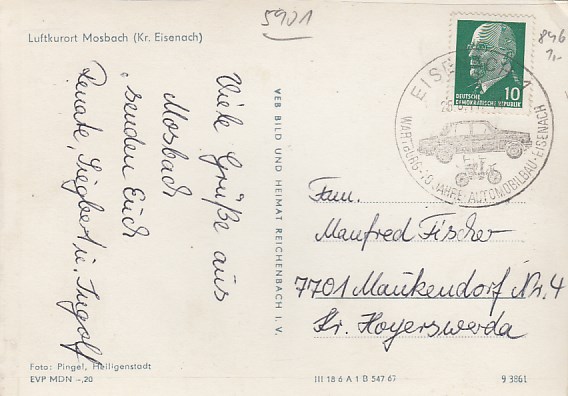 5901
Luftkurort Mosbach (Kr. Eisenach)
846
1,-
DEUTSCHE
DEMOKRATISCHE REPUBLIK
10
EISENACH 1
WARTBURG · 70 JAHRE AUTOMOBILBAU · EISENACH
Viele Grüße aus
Mosbach
senden Euch
Renate, Siegbert u. Ingolf
VEB BILD UND HEIMAT REICHENBACH I. V.
Fam.
Manfred Fischer
7701 Maukendorf Nr. 4
Kr. Hoyerswerda
Foto: Pingel, Heiligenstadt
EVP MDN -,20
III 18 6 A 1 B 547 67
9 3861